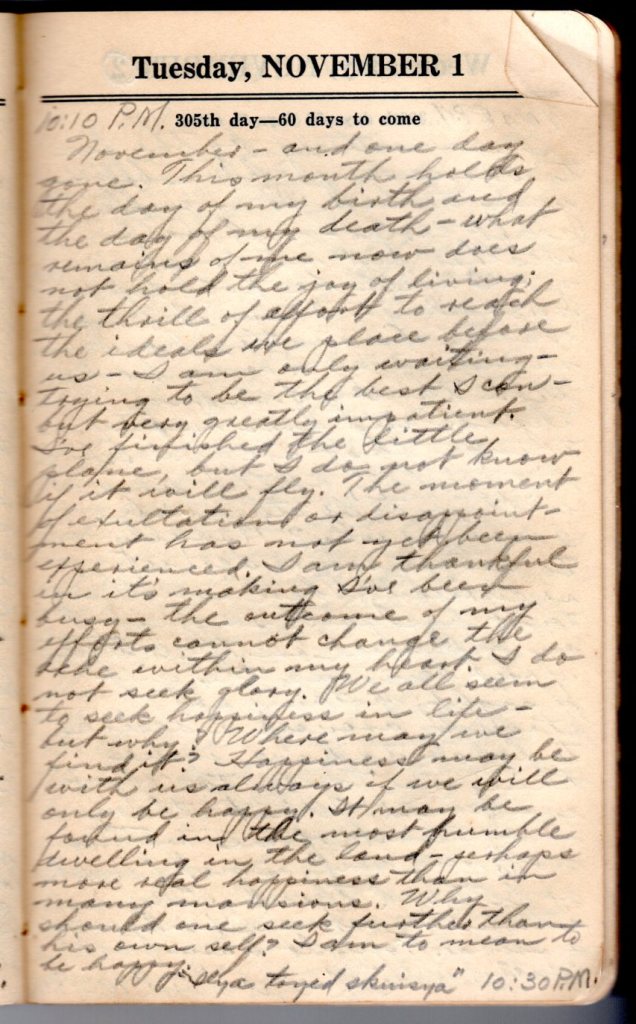 Tuesday, NOVEMBER 1
10:10 P.M. 305th day—60 days to come
November - and one day
gone. This month holds
the day of my birth and
the day of my death - what
remains of me now does
not hold the joy of living;
the thrill of effort to reach
the ideals we place before
us - I am only waiting -
trying to be the best I can -
but very greatly impatient.
I've finished the little
plane, but I do not know
if it will fly. The moment
of exultation or disappoint-
ment has not yet been
experienced. I am thankful
in it's making I've been
busy - the outcome of my
efforts cannot change the
within my heart. I do
not seek glory. We all seem
to seek happiness in life -
but why? Where may we
find it? Happiness may be
with us always if we will
only be happy. It may be
found in the most humble
dwelling in the land - perhaps
more real happiness than in
many mansions. Why
should one seek further than
his own self? I am to mean to
be happy. "seya toyed skinsya" 10:30 P.M.